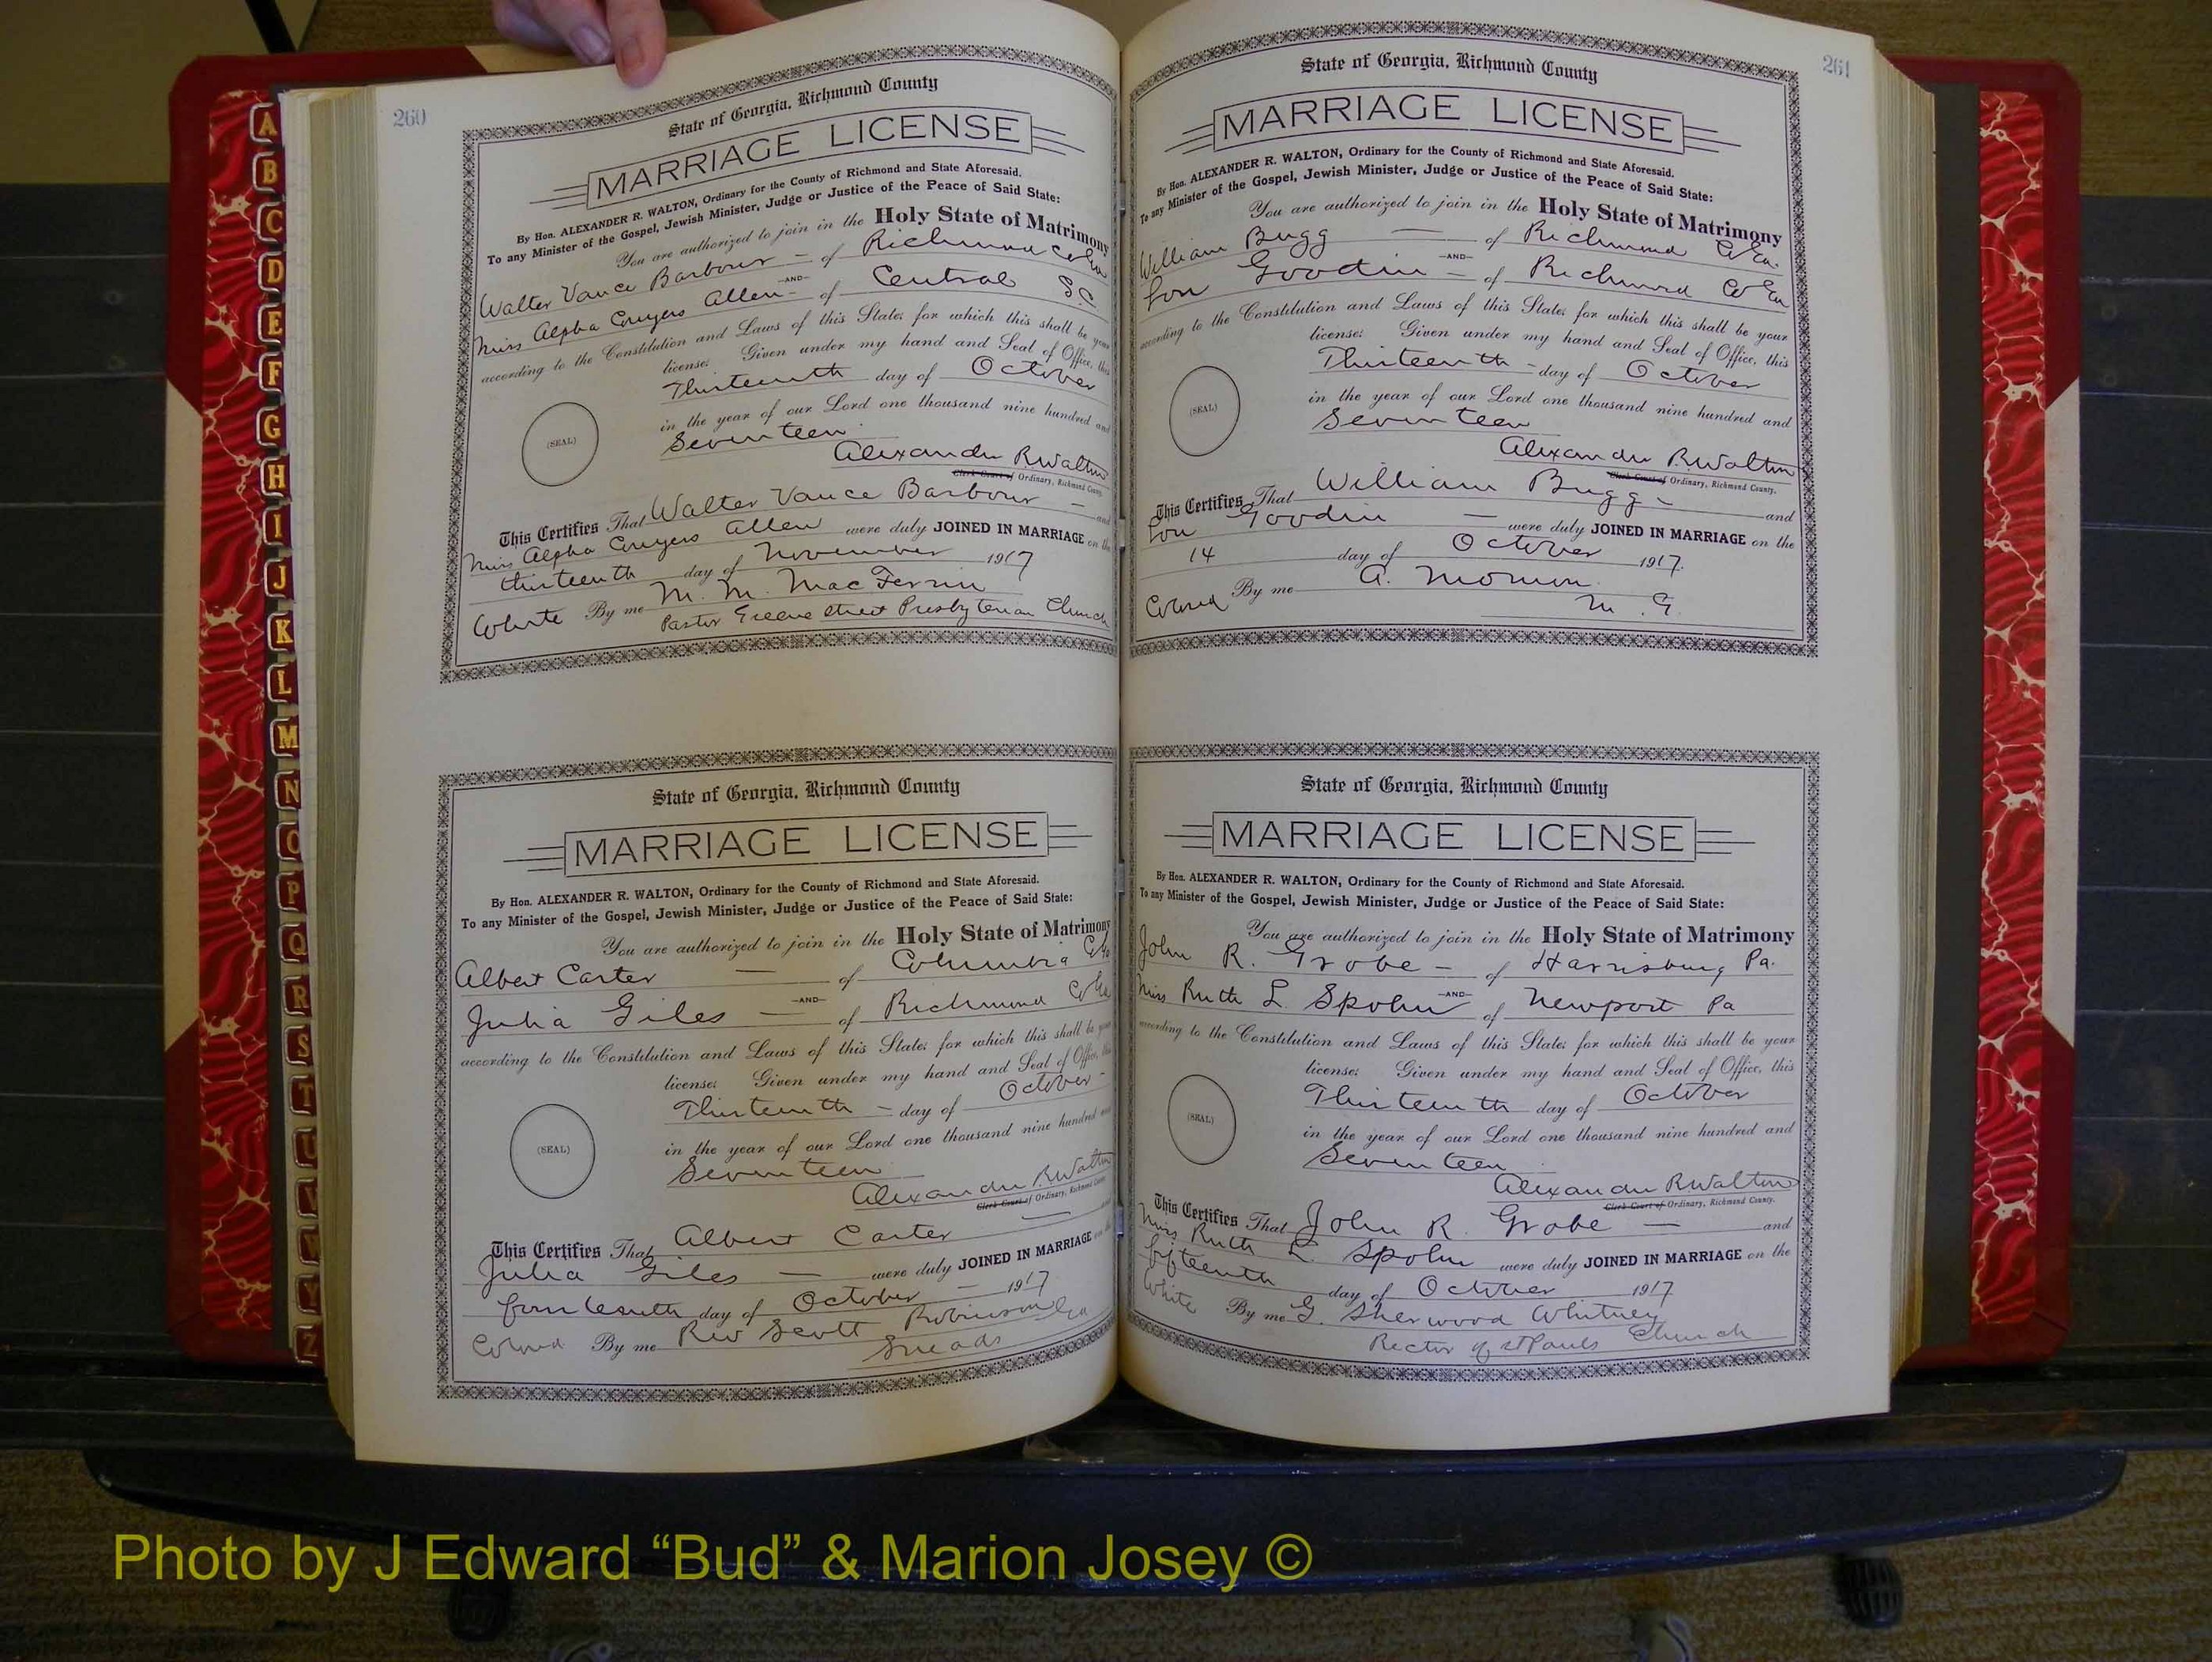 260
State of Georgia, Richmond County
MARRIAGE LICENSE
By Hon. ALEXANDER R. WALTON, Ordinary for the County of Richmond and State Aforesaid.
To any Minister of the Gospel, Jewish Minister, Judge or Justice of the Peace of Said State:
You are authorized to join in the Holy State of Matrimony
Walter Vance Barbour of Richmond Co Ga
AND
Miss Alpha Allen of Central S.C.
according to the Constitution and Laws of this State; for which this shall be your
license: Given under my hand and Seal of Office, this
Thirteenth day of October
(SEAL)
in the year of our Lord one thousand nine hundred and
Seventeen
Alexander R Walton
Clerk Court of Ordinary, Richmond County.
This Certifies That Walter Vance Barbour and
Miss Alpha Allen were duly JOINED IN MARRIAGE on the
thirteenth day of November 1917
White By me M. M. MacFerrin
Pastor Greene Street Presbyterian Church
State of Georgia, Richmond County
MARRIAGE LICENSE
By Hon. ALEXANDER R. WALTON, Ordinary for the County of Richmond and State Aforesaid.
To any Minister of the Gospel, Jewish Minister, Judge or Justice of the Peace of Said State:
You are authorized to join in the Holy State of Matrimony
Albert Carter of Columbia
AND
Julia Giles of Richmond Co Ga
according to the Constitution and Laws of this State; for which this shall be your
license: Given under my hand and Seal of Office, this
Thirteenth day of October
(SEAL)
in the year of our Lord one thousand nine hundred and
Seventeen
Alexander R Walton
Clerk Court of Ordinary, Richmond County
This Certifies That Albert Carter
Julia Giles were duly JOINED IN MARRIAGE on the
fourteenth day of October 1917
Colored By me Rev Scott Robinson Ga
Sneads
261
State of Georgia, Richmond County
MARRIAGE LICENSE
By Hon. ALEXANDER R. WALTON, Ordinary for the County of Richmond and State Aforesaid.
To any Minister of the Gospel, Jewish Minister, Judge or Justice of the Peace of Said State:
You are authorized to join in the Holy State of Matrimony
William Bugg of Richmond Co Ga.
AND
Lou Goodin of Richmond Co Ga
according to the Constitution and Laws of this State; for which this shall be your
license: Given under my hand and Seal of Office, this
Thirteenth day of October
(SEAL)
in the year of our Lord one thousand nine hundred and
Seventeen
Alexander R. Walton
Clerk Court of Ordinary, Richmond County.
This Certifies That William Bugg and
Lou Goodin were duly JOINED IN MARRIAGE on the
14 day of October 1917.
Colored By me A.
M. G.
State of Georgia, Richmond County
MARRIAGE LICENSE
By Hon. ALEXANDER R. WALTON, Ordinary for the County of Richmond and State Aforesaid.
To any Minister of the Gospel, Jewish Minister, Judge or Justice of the Peace of Said State:
You are authorized to join in the Holy State of Matrimony
John R. Grobe of Harrisburg Pa.
AND
Miss Ruth L. Spohn of Newport Pa
according to the Constitution and Laws of this State; for which this shall be your
license: Given under my hand and Seal of Office, this
Thirteenth day of October
(SEAL)
in the year of our Lord one thousand nine hundred and
Seventeen
Alexander R Walton
Clerk Court of Ordinary, Richmond County.
This Certifies That John R. Grobe and
Miss Ruth L. Spohn were duly JOINED IN MARRIAGE on the
fifteenth day of October 1917
White By me G. Sherwood Whitney
Rector of St Pauls Church
A
B
C
D
E
F
G
H
I
J
K
L
M
N
O
P
Q
R
S
T
U
V
W
Y
Z
Photo by J Edward “Bud” & Marion Josey ©